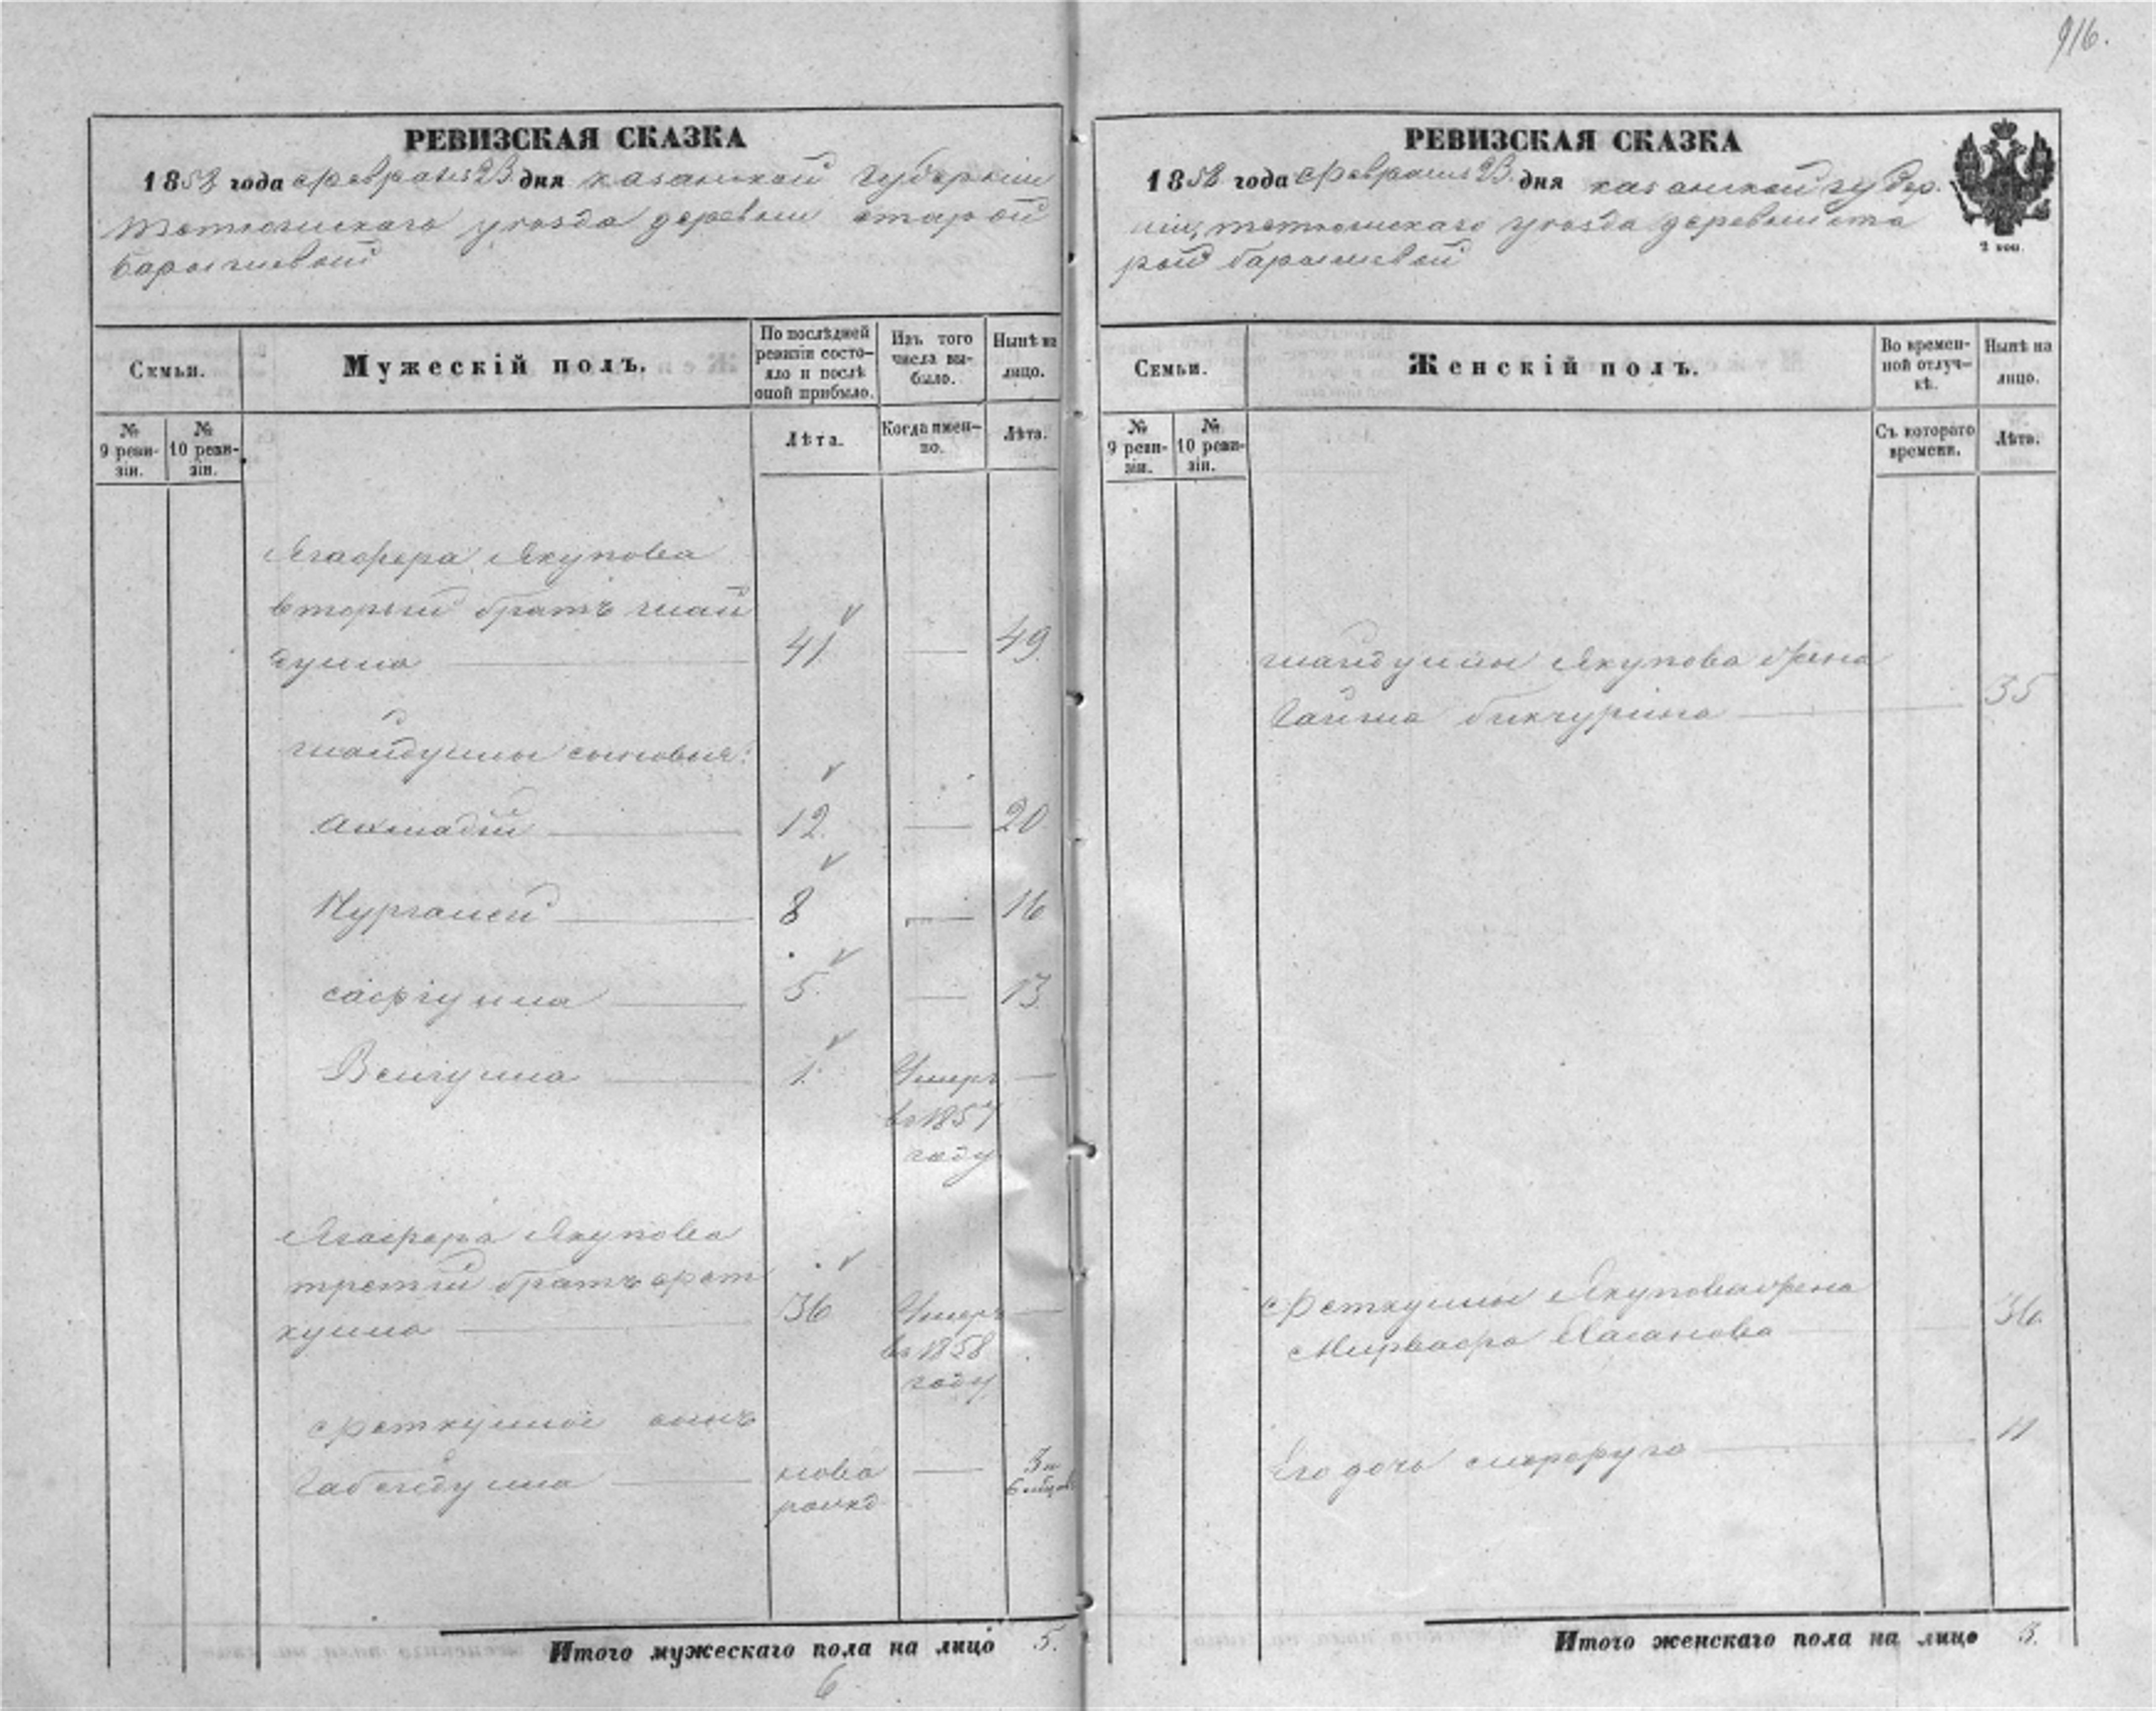 916.
РЕВИЗСКАЯ СКАЗКА
1858 года февраля 23 дня казанской губернiи
тетюшскаго уезда деревни старой
барышевой
Семьи.
Мужескiй полъ.
По послѣдней ревизiи состояло и послѣ оной прибыло.
Изъ того числа выбыло.
Нынѣ на лицо.
№ 9 ревизiи.
№ 10 ревизiи.
Лѣта.
Когда именно.
Лѣта.
Ягафера Якупова
вторый братъ шай
дулла 41. — 49.
шайдуллы сыновья:
Ахмадiй 12. — 20
Нургалей 8 — 16
сафiулла 5. — 13.
Велиулла 1. Умеръ —
въ 1857
году
Ягафера Якупова
третiй братъ фет
кулла 36 Умеръ —
въ 1858
году
феткуллы сынъ
Габейдулла ново — 3 и
рожд. 6 мѣсяц
Итого мужескаго пола на лицо 5.
6
РЕВИЗСКАЯ СКАЗКА
1858 года февраля 23 дня казанской губер.
нiи, тетюшскаго уезда деревни ста
рой барышевой
2 коп.
Семьи.
Женскiй полъ.
Во временной отлучкѣ.
Нынѣ на лицо.
№ 9 ревизiи.
№ 10 ревизiи.
Съ котораго времени.
Лѣта.
шайдуллы Якупова жена
бикчурина — 35
феткуллы Якупова жена
Хасанова — 36.
Его дочь — 11
Итого женскаго пола на лицо 3.